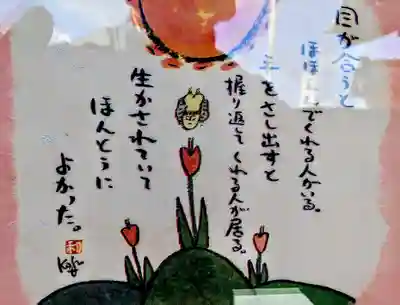 目が合うと
ほほえんでくれる人がいる。
手をさし出すと
握り返してくれる人が居る。
生かされていて
ほんとうに
よかった。